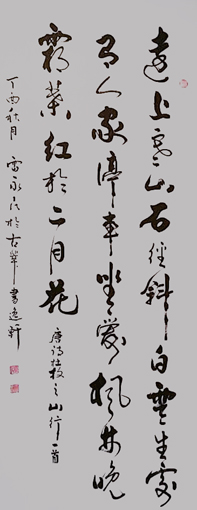 遠上寒山石径斜白雲生處
有人家停車坐愛楓林晚
霜葉紅於二月花 唐詩杜牧之山行一首
丁酉秋月 雷永民於古莘書逸軒